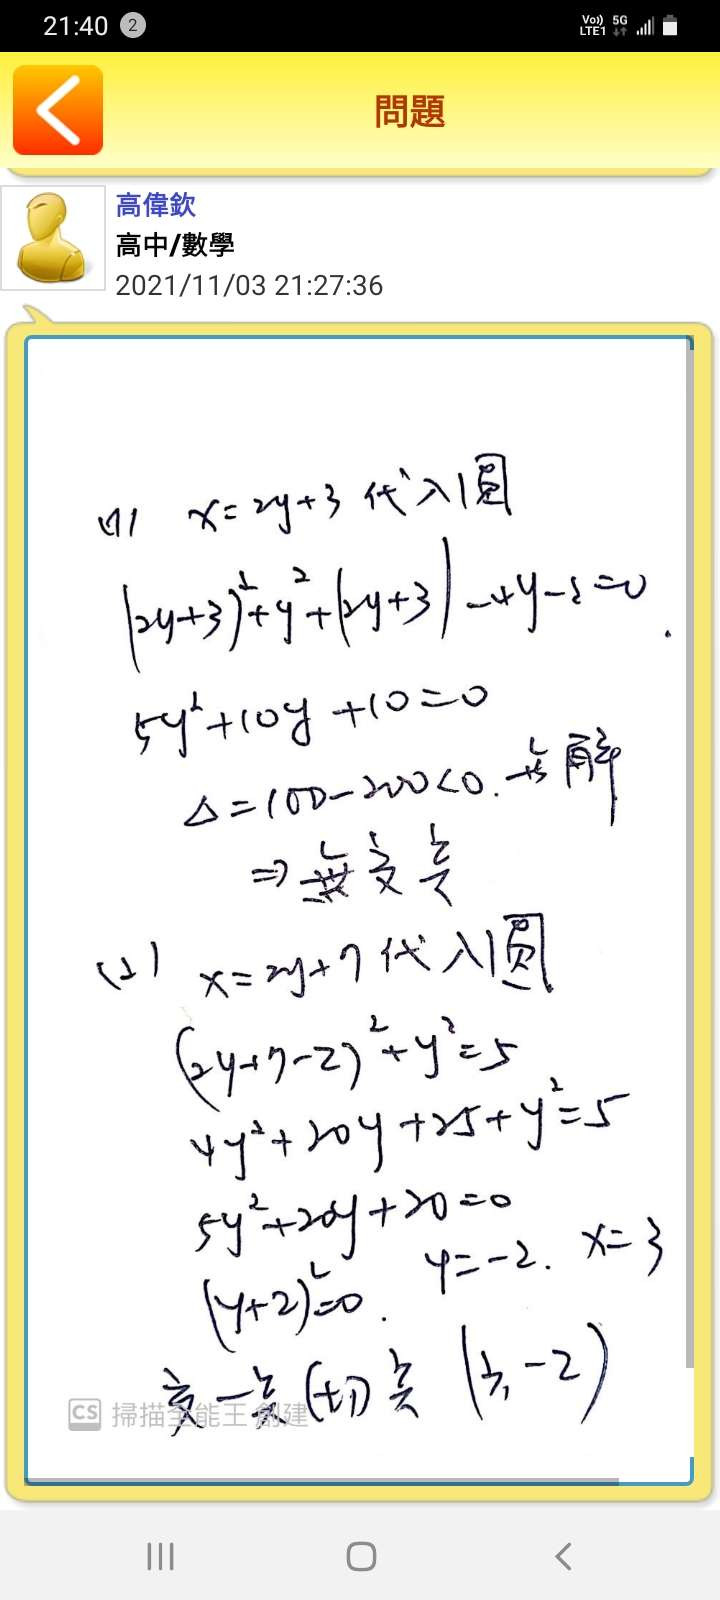 21:40 2 Vo)) 5G
LTE1
問題
高偉欽
高中/數學
2021/11/03 21:27:36
(1) x=2y+3 代入圓
(2y+3)²+y²+(2y+3)-4y-2=0.
5y²+10y+10=0
Δ=100-200<0. 無解
⇒無交點
(2) x=2y+7代入圓
(2y+7-2)²+y²=5
4y²+20y+25+y²=5
5y²+20y+20=0
(y+2)²=0. y=-2. x=3
交一點(切)點 (3,-2)
CS 掃描全能王 創建